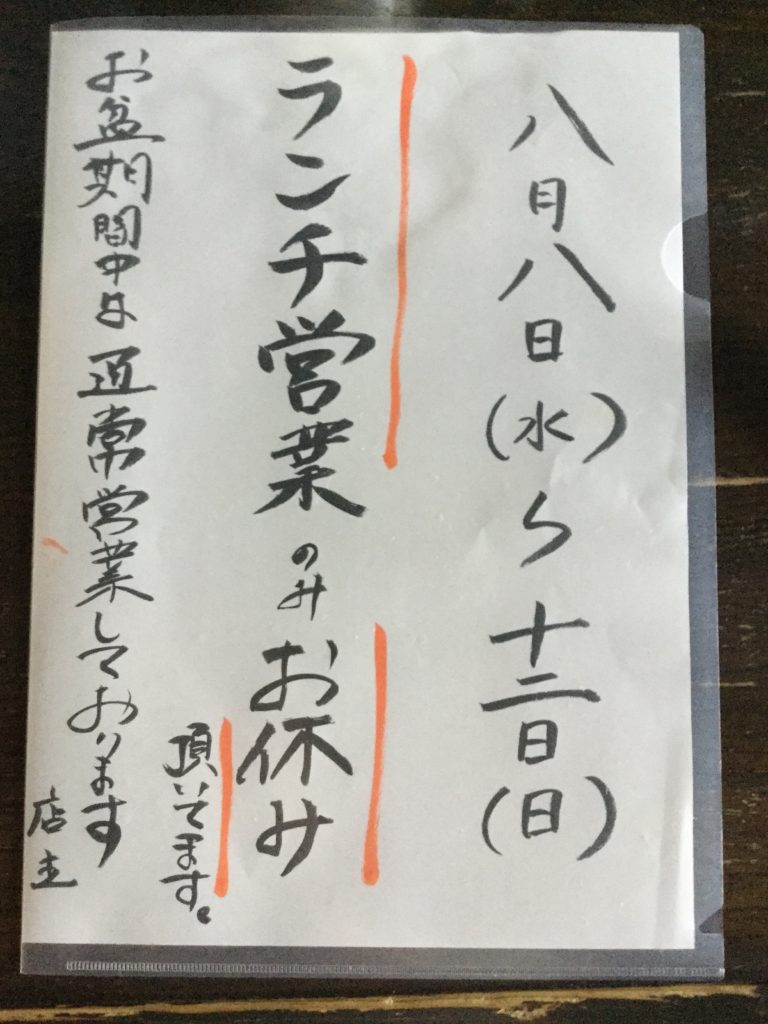 八月八日(水)〜十二日(日)
ランチ営業のみお休み
頂いてます。
お盆期間中は通常営業しております
店主